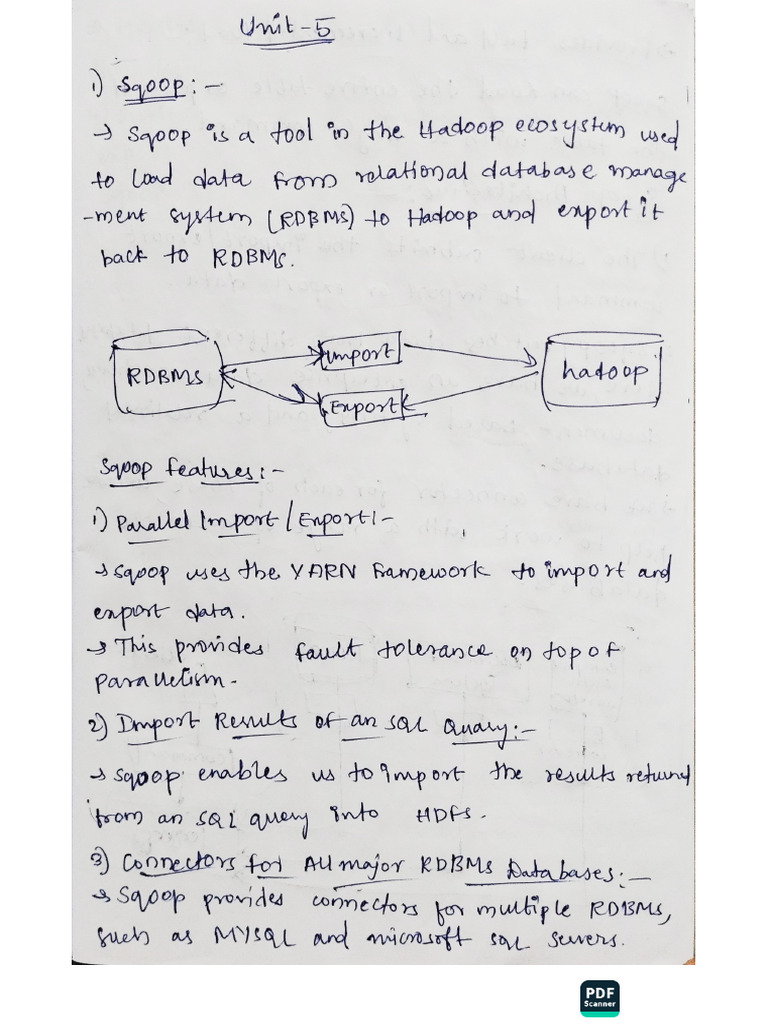 Unit-5
1) Sqoop:-
→ Sqoop is a tool in the Hadoop ecosystem used
to load data from relational database manage
-ment system (RDBMS) to Hadoop and export it
back to RDBMS.
RDBMS import hadoop
Export
Sqoop features:-
1) Parallel Import/Export:-
→ Sqoop uses the YARN framework to import and
export data.
→ This provides fault tolerance on top of
parallelism.
2) Import Results of an SQL Query:-
→ Sqoop enables us to import the results returned
from an SQL query into HDFS.
3) Connectors for All major RDBMS Databases:-
→ Sqoop provides connectors for multiple RDBMS,
such as MYSQL and microsoft SQL servers.
PDF
Scanner